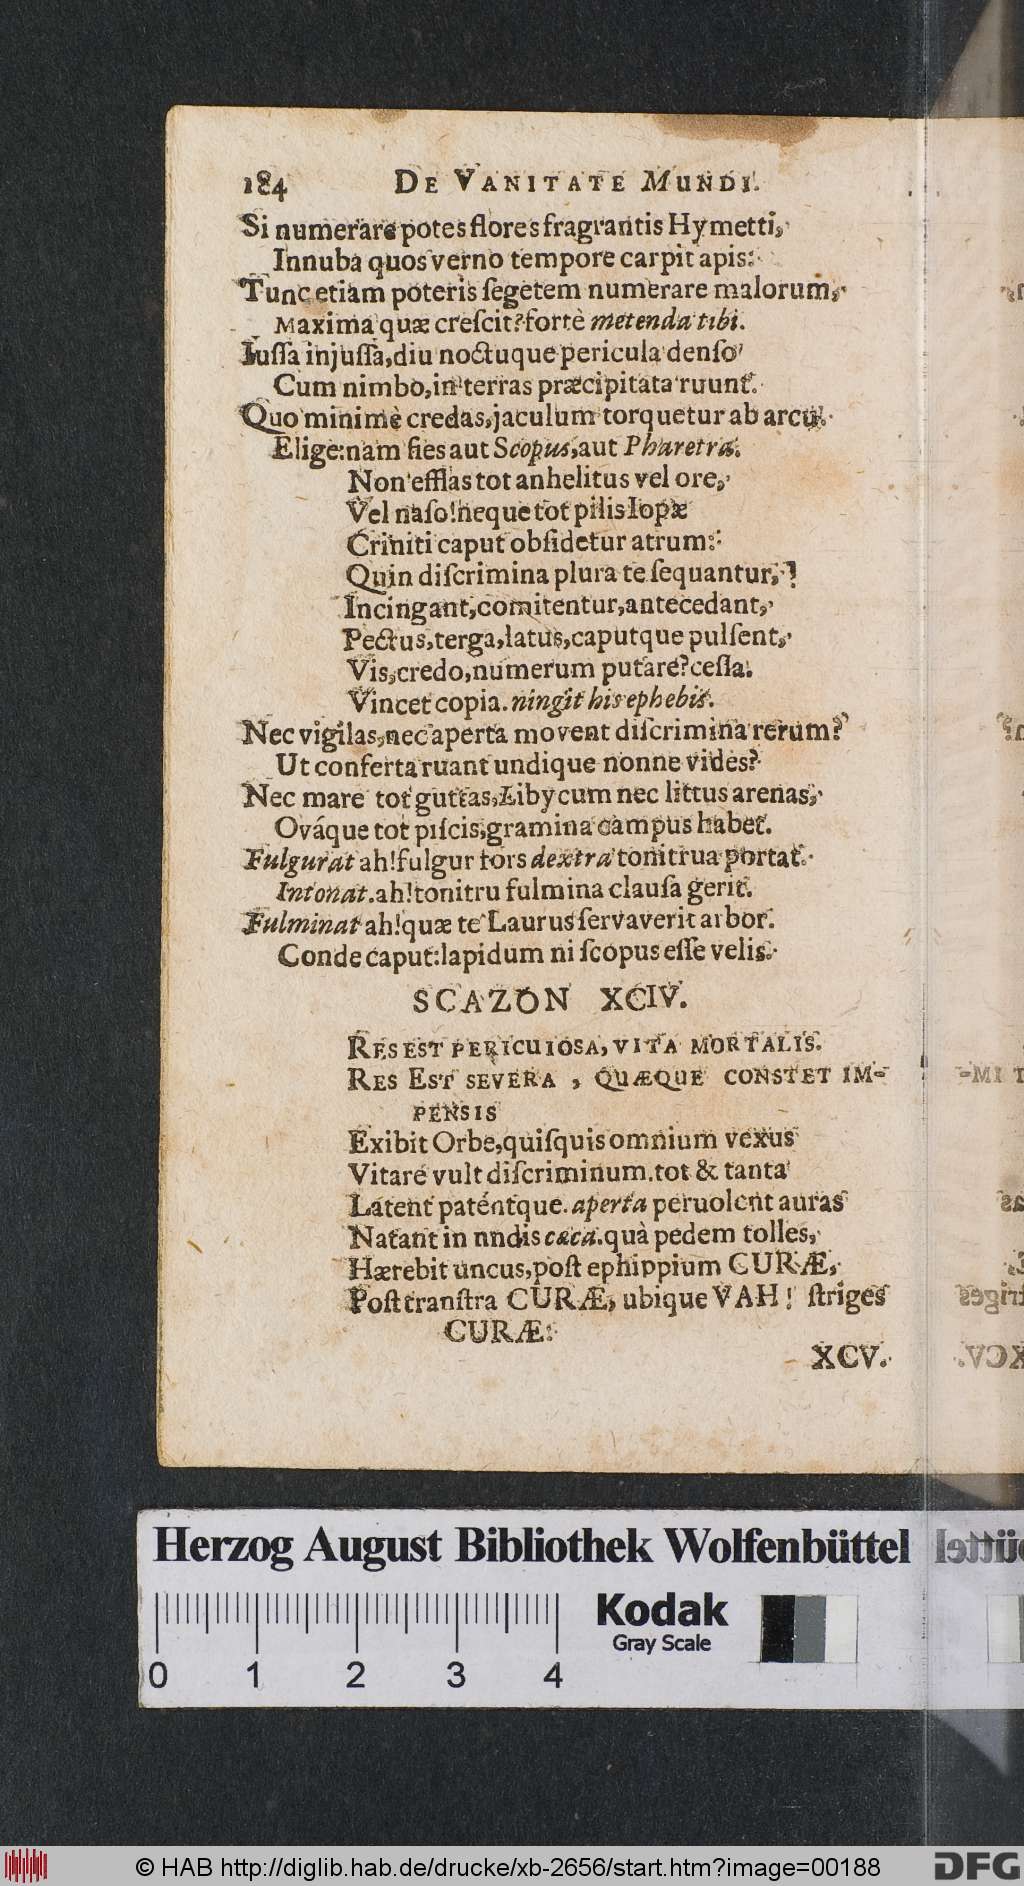 184 DE VANITATE MUNDI.
Si numerare potes flores fragrantis Hymetti,
Innuba quos verno tempore carpit apis:
Tunc etiam poteris ſegetem numerare malorum,
Maxima quæ creſcit? fortè metenda tibi.
Iuſſa injuſſa, diu noctuque pericula denſo
Cum nimbo, in terras præcipitata ruunt.
Quo minimè credas, jaculum torquetur ab arcu.
Elige: nam fies aut Scopus, aut Pharetra.
Non efflas tot anhelitus vel ore,
Vel naſo! neque tot pilis Iopæ
Criniti caput obſidetur atrum:
Quin diſcrimina plura te ſequantur,
Incingant, comitentur, antecedant,
Pectus, terga, latus, caputque pulſent,
Vis, credo, numerum putare? ceſſa.
Vincet copia. ningit his ephebis.
Nec vigilas, nec aperta movent diſcrimina rerum?
Ut conferta ruant undique nonne vides?
Nec mare tot guttas, Libycum nec littus arenas,
Ováque tot piſcis, gramina campus habet.
Fulgurat ah! fulgur fors dextra tonitrua portat.
Intonat. ah! tonitru fulmina clauſa gerit.
Fulminat ah! quæ te Laurus ſervaverit arbor.
Conde caput: lapidum ni ſcopus eſſe velis.
SCAZON XCIV.
RES EST PERICULOSA, VITA MORTALIS.
RES EST SEVERA, QUÆQUE CONSTET IM-
PENSIS
Exibit Orbe, quiſquis omnium vexus
Vitare vult diſcriminum. tot & tanta
Latent paténtque. aperta peruolent auras
Natant in nndis cæca. quà pedem tolles,
Hærebit uncus, poſt ephippium CURÆ,
Poſt tranſtra CURÆ, ubique VAH! ſtriges
CURÆ:
XCV.
Herzog August Bibliothek Wolfenbüttel
Kodak
Gray Scale
0 1 2 3 4
© HAB http://diglib.hab.de/drucke/xb-2656/start.htm?image=00188
DFG